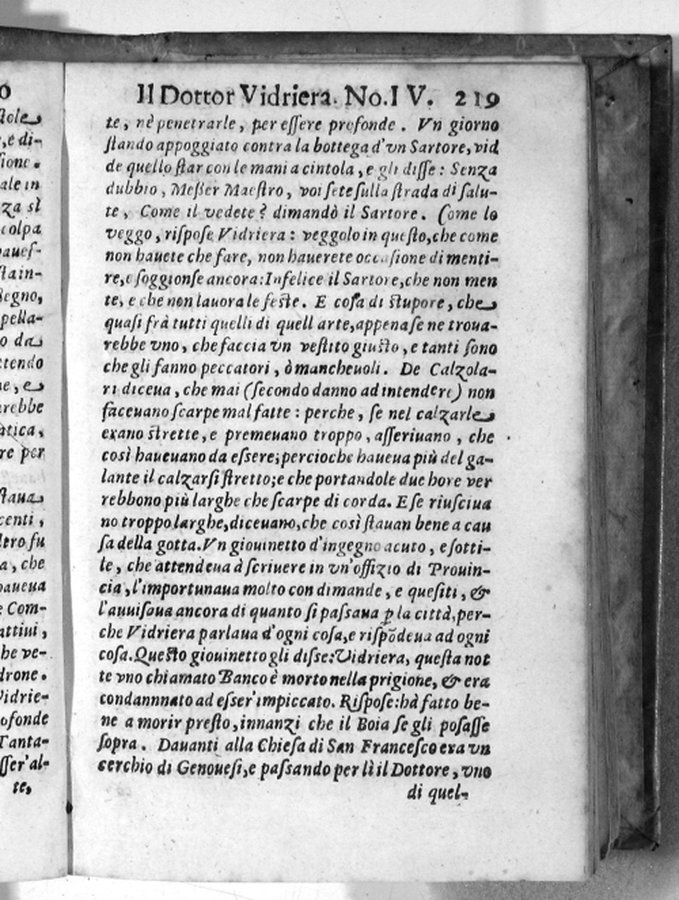 Il Dottor Vidriera. No. IV. 219
te, nè penetrarle, per essere profonde. Vn giorno
stando appoggiato contra la bottega d'vn Sartore, vid
de quello star con le mani a cintola, e gli disse: Senza
dubbio, Messer Maestro, voi sete sulla strada di salu-
te, Come il vedete? dimandò il Sartore. Come lo
veggo, rispose Vidriera: veggolo in questo, che come
non hauete che fare, non hauerete occasione di menti-
re, e soggionse ancora: Infelice il Sartore, che non men
te, e che non lauora le feste. E cosa di stupore, che
quasi frà tutti quelli di quell arte, appena se ne troua-
rebbe vno, che faccia vn vestito giusto, e tanti sono
che gli fanno peccatori, ò mancheuoli. De Calzola-
ri diceua, che mai (secondo danno ad intendere) non
faceuano scarpe mal fatte: perche, se nel calzarle
erano strette, e premeuano troppo, asseriuano, che
così haueuano da essere; percioche haueua più del ga-
lante il calzarsi stretto; e che portandole due hore ver
rebbono più larghe che scarpe di corda. E se riusciua
no troppo larghe, diceuano, che così stauan bene a cau
sa della gotta. Vn giouinetto d'ingegno acuto, e sotti-
le, che attendeua à scriuere in vn'offizio di Prouin-
cia, l'importunaua molto con dimande, e quesiti, &
l'auuisaua ancora di quanto si passaua ꝑ la città, per-
che Vidriera parlaua d'ogni cosa, e rispõdeua ad ogni
cosa. Questo giouinetto gli disse: Vidriera, questa not
te vno chiamato Banco è morto nella prigione, & era
condannnato ad esser'impiccato. Rispose: hà fatto be-
ne a morir presto, innanzi che il Boia se gli posasse
sopra. Dauanti alla Chiesa di San Francesco era vn
cerchio di Genouesi, e passando per lì il Dottore, vno
di quel-